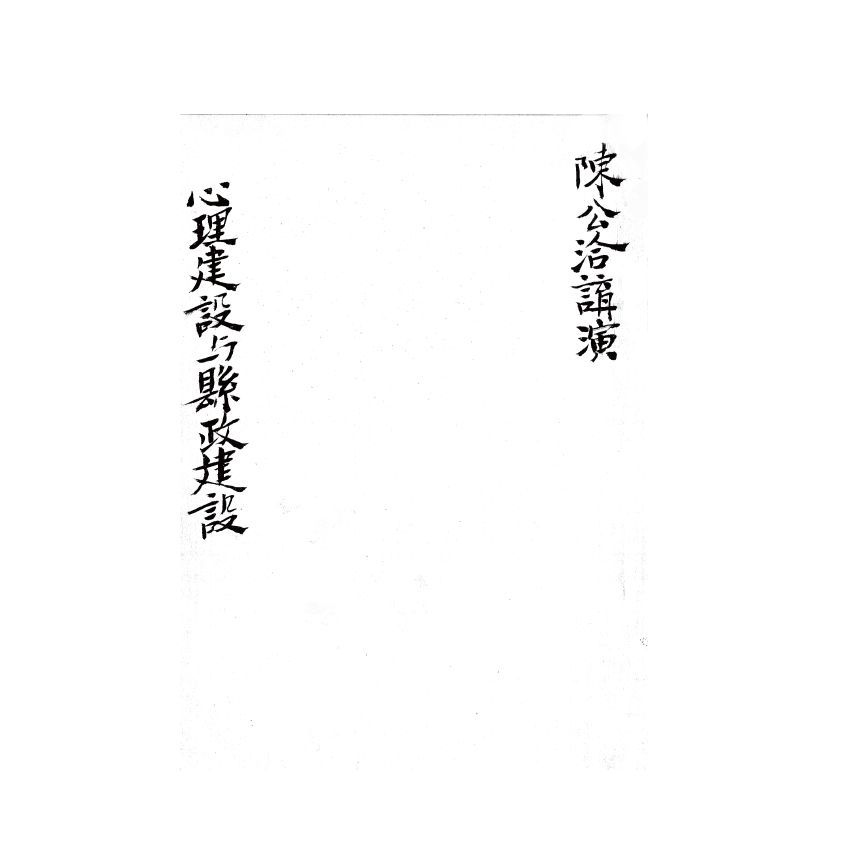 陳公洽講演
心理建設与縣政建設